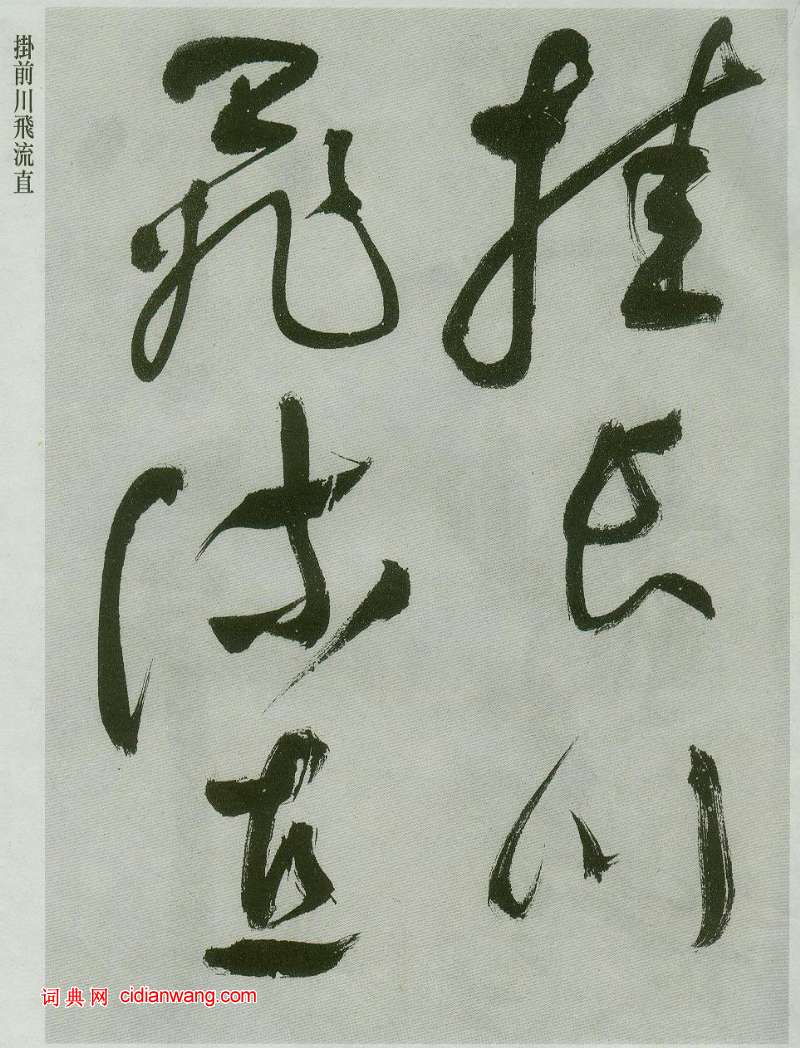 挂前川
飛流直
掛前川飛流直
词典网 cidianwang.com